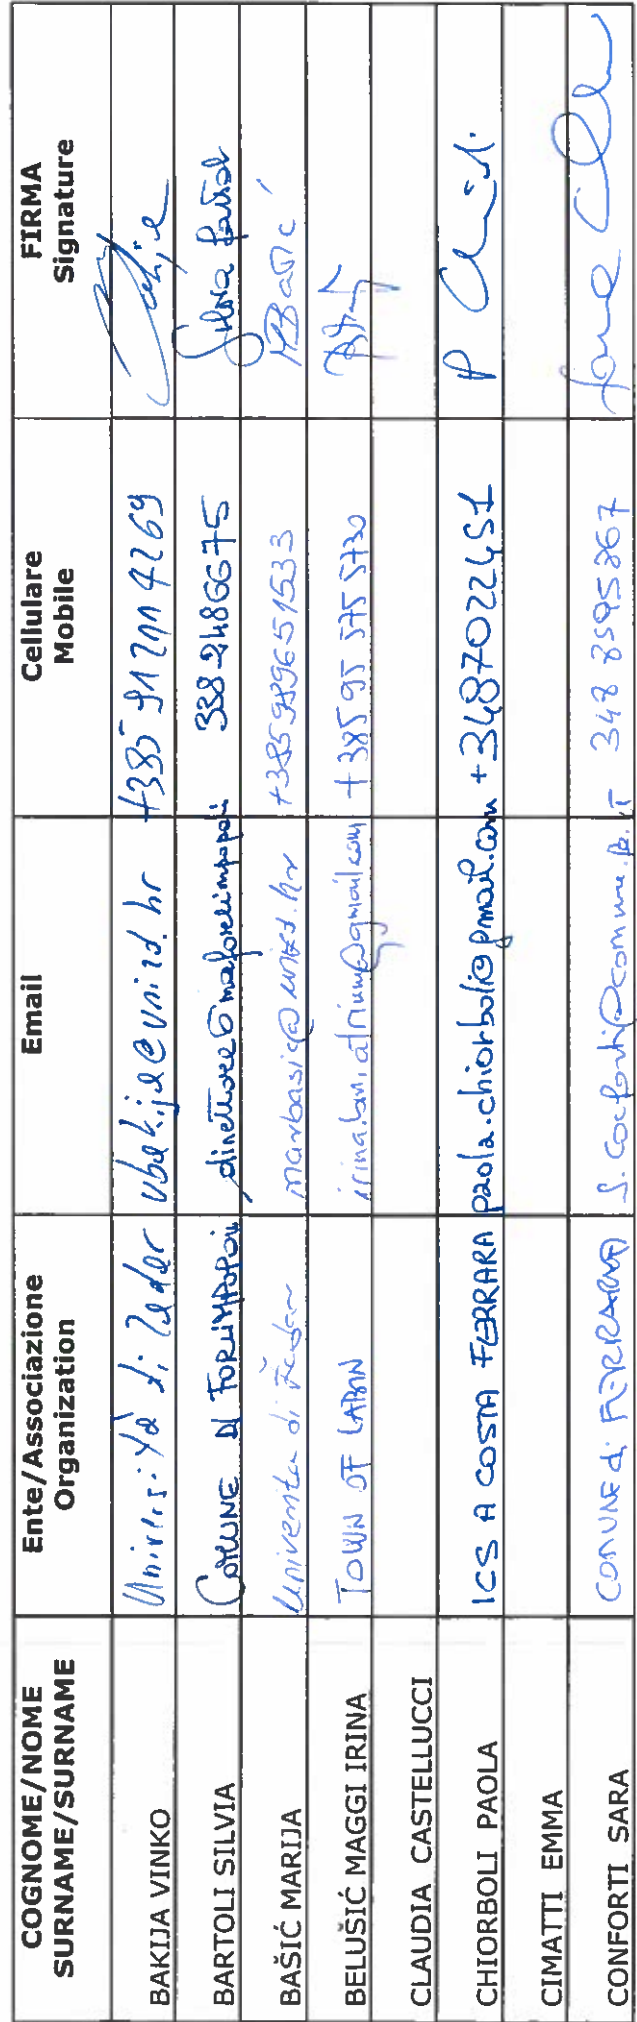 COGNOME/NOME SURNAME/SURNAME Ente/Associazione Organization Email Cellulare Mobile FIRMA Signature
BAKIJA VINKO Università di Zadar vbakija@unizd.hr +385 91 2011 4269
BARTOLI SILVIA COMUNE DI FORLIMPOPOLI direttore@maforlimpopoli 338 2486675 Silvia Bartoli
BAŠIĆ MARIJA Universita di Zadar marbasic@unizd.hr +385989651533 MBašić
BELUŠIĆ MAGGI IRINA TOWN OF LABIN +385 95 575 5730
CLAUDIA CASTELLUCCI
CHIORBOLI PAOLA ICS A COSTA FERRARA paola.chiorboli@gmail.com +3487022451 P
CIMATTI EMMA
CONFORTI SARA COMUNE di FERRARA 348 8595867